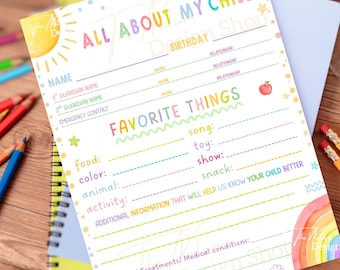 ALL ABOUT MY CHI
NAME BIRTHDAY
1ST GUARDIAN NAME PHONE RELATIONSHIP
2ND GUARDIAN NAME PHONE RELATIONSHIP
EMERGENCY CONTACT PHONE RELATIONSHIP
FAVORITE THINGS
food: song:
color: toy:
animal: show:
activity: snack:
ADDITIONAL INFORMATION THAT WILL HELP US KNOW YOUR CHILD BETTER
Treatments/ Medical conditions: